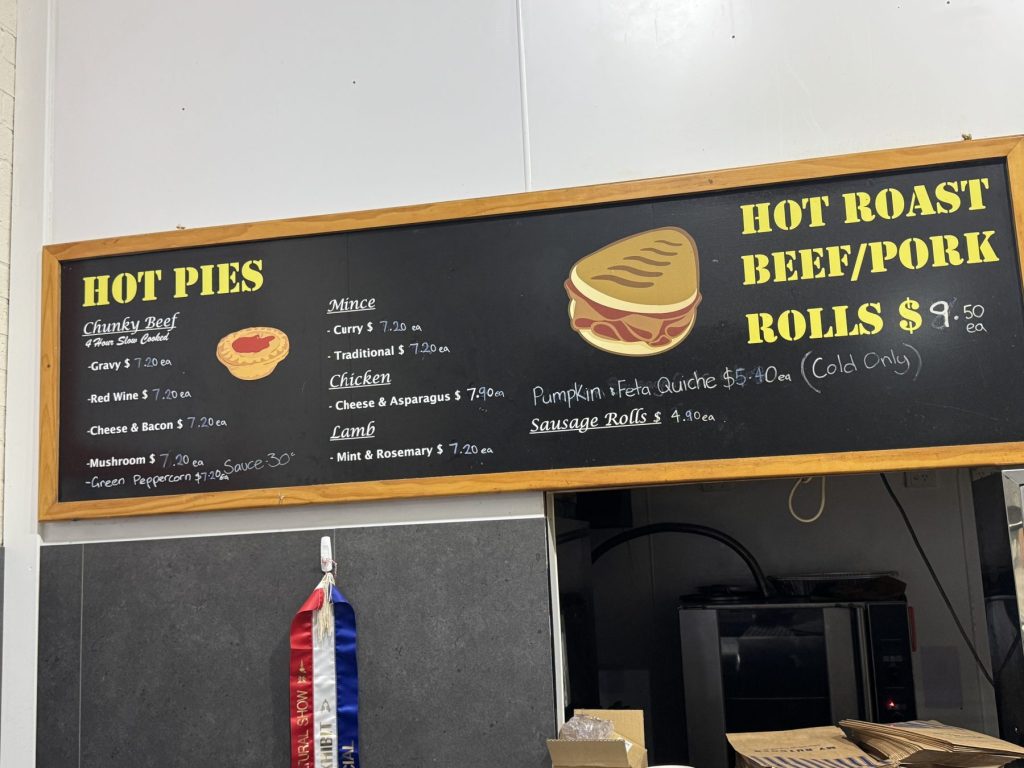 HOT PIES
Chunky Beef
4 Hour Slow Cooked
-Gravy $ 7.20 ea
-Red Wine $ 7.20 ea
-Cheese & Bacon $ 7.20 ea
-Mushroom $ 7.20 ea
-Green Peppercorn $7.20 ea
Sauce .30c
Mince
- Curry $ 7.20 ea
- Traditional $ 7.20 ea
Chicken
- Cheese & Asparagus $ 7.90 ea
Lamb
- Mint & Rosemary $ 7.20 ea
HOT ROAST
BEEF/PORK
ROLLS $ 9.50
ea
Pumpkin & Feta Quiche $5.40 ea (Cold Only)
Sausage Rolls $ 4.90 ea
URAL SHOW
XHIBIT A
IAL